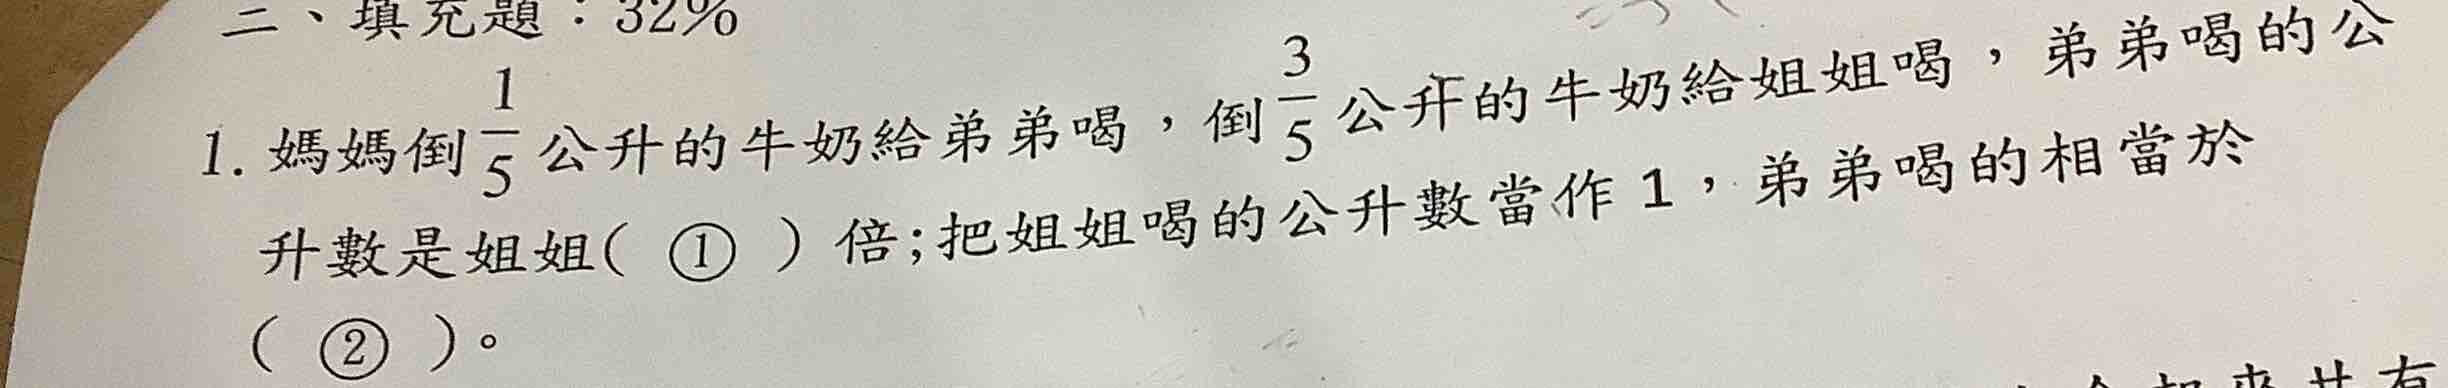 二、填充題：32%
1. 媽媽倒 1/5 公升的牛奶給弟弟喝，倒 3/5 公升的牛奶給姐姐喝，弟弟喝的公
升數是姐姐( ① ) 倍;把姐姐喝的公升數當作 1，弟弟喝的相當於
( ② )。